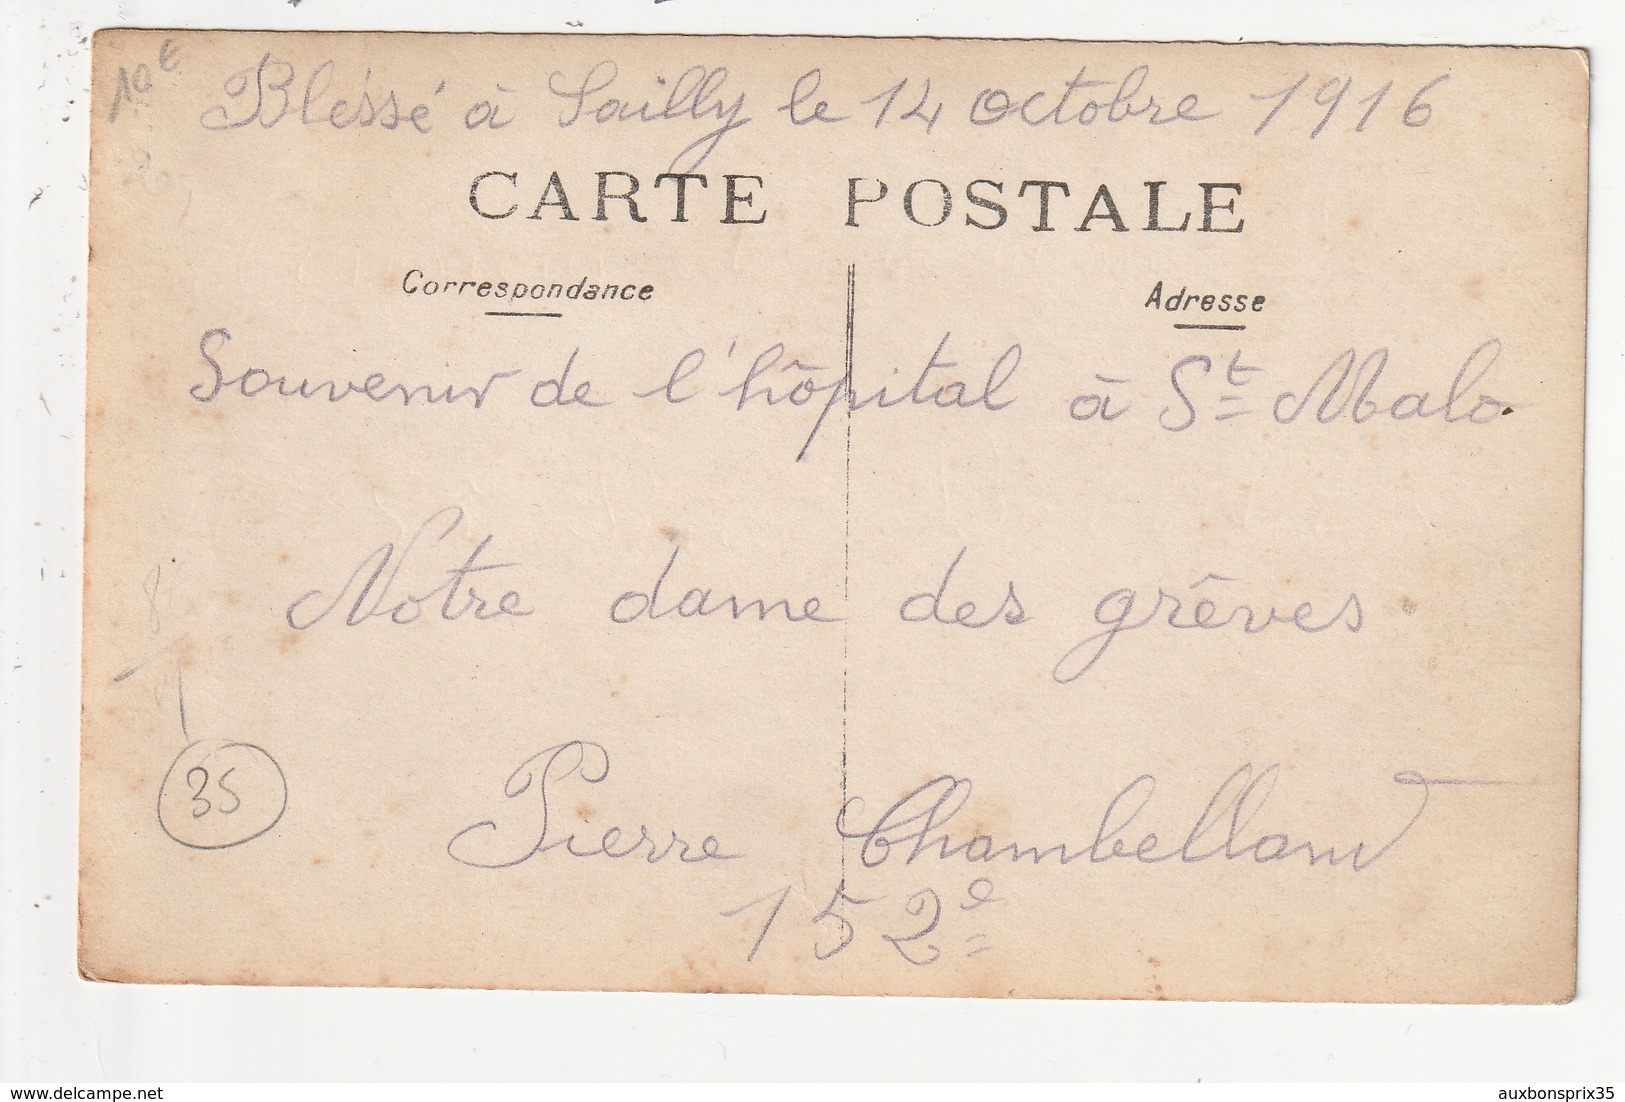 10€
Bléssé à Sailly le 14 octobre 1916
CARTE POSTALE
Correspondance
Adresse
Souvenir de l'hôpital à St Malo
Notre dame des grêves
35
Pierre Chambelland
152e
www.delcampe.net
auxbonsprix35